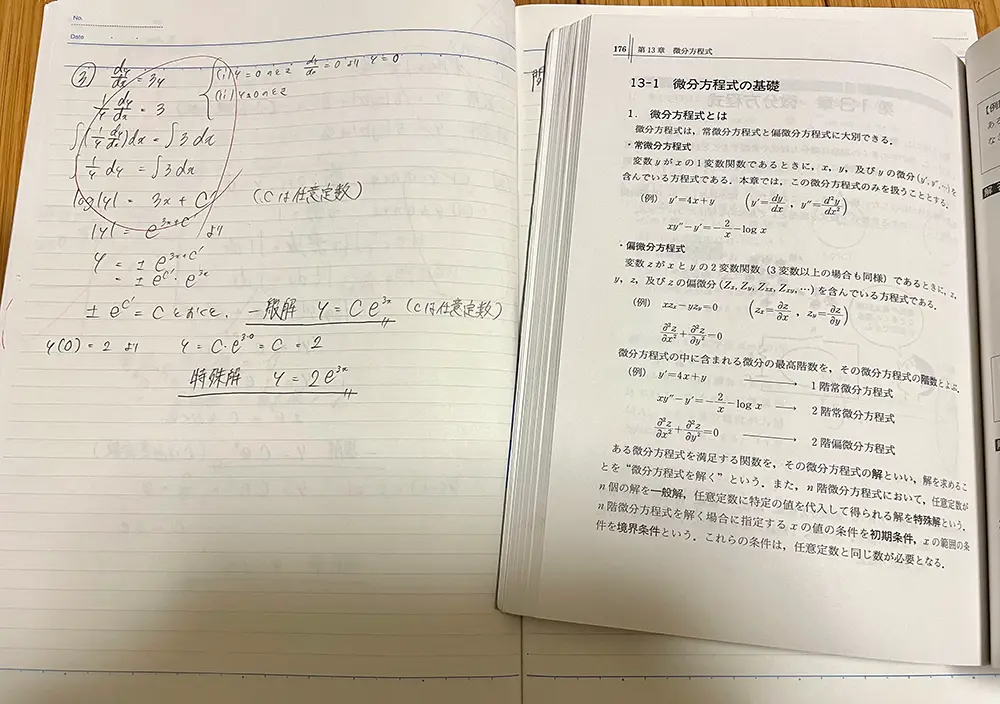 No.
Date
③ dy/dx = 3y
(i) y=0のとき dy/dx = 0 より y=0
1/y dy/dx = 3
(ii) y≠0のとき
∫(1/y dy/dx)dx = ∫3dx
∫1/y dy = ∫3dx
log|y| = 3x+C' (C'は任意定数)
|y| = e^{3x+C'} より
y = ± e^{3x+C'}
= ± e^{C'}・e^{3x}
± e^{C'} = C とおくと、一般解 y = Ce^{3x} (Cは任意定数)
y(0) = 2 より y = C・e^{3・0} = C = 2
特殊解 y = 2e^{3x}
176 第13章 微分方程式
13-1 微分方程式の基礎
1. 微分方程式とは
微分方程式は,常微分方程式と偏微分方程式に大別できる.
・常微分方程式
変数yがxの1変数関数であるときに,x,y,及びyの微分(y′,y″,…)を
含んでいる方程式である.本章では,この微分方程式のみを扱うこととする.
(例) y′=4x+y (y′=dy/dx, y″=d²y/dx²)
xy″−y′=−2/x−log x
・偏微分方程式
変数zがxとyの2変数関数(3変数以上の場合も同様)であるときに,x,
y,z,及びzの偏微分(Zx,Zy,Zxx,Zxy,…)を含んでいる方程式である.
(例) xzx−yzy=0 (zx=∂z/∂x, zy=∂z/∂y)
∂²z/∂x²+∂²z/∂y²=0
微分方程式の中に含まれる微分の最高階数を,その微分方程式の階数とよぶ.
(例) y′=4x+y → 1階常微分方程式
xy″−y′=−2/x−log x → 2階常微分方程式
∂²z/∂x²+∂²z/∂y²=0 → 2階偏微分方程式
ある微分方程式を満足する関数を,その微分方程式の解といい,解を求めるこ
とを“微分方程式を解く”という.また,n階微分方程式において,任意定数が
n個の解を一般解,任意定数に特定の値を代入して得られる解を特殊解という.
n階微分方程式を解く場合に指定するxの値の条件を初期条件,xの範囲の条
件を境界条件という.これらの条件は,任意定数と同じ数が必要となる.
【例
ある
な
解